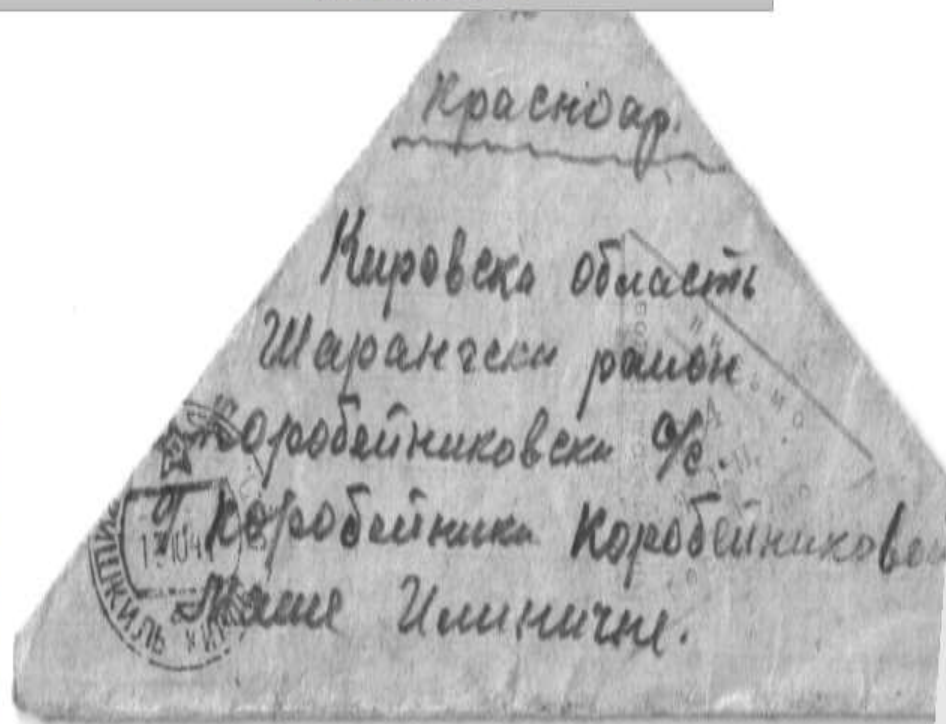 Красноар.
Кировска область
Шарангски район
Коробейниковски с/с.
д Коробейники Коробейниковой
Илиничне.
ШИШКИЛЬ КИР